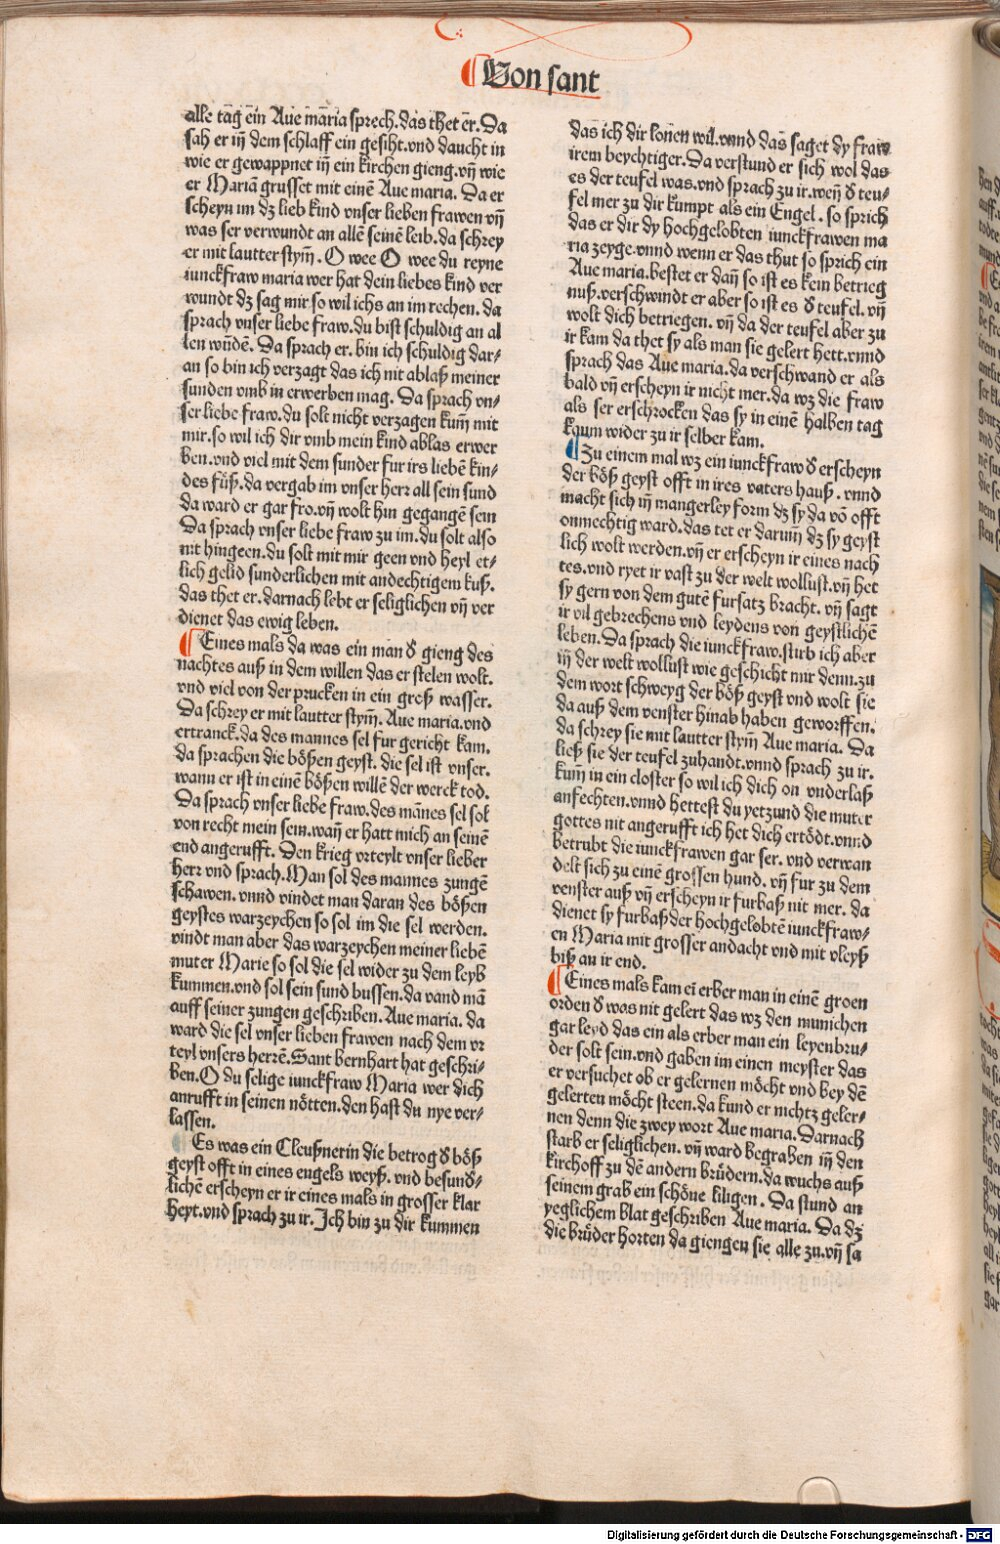 ¶ Von sant
alle tag ein Aue maria sprech. das thet er. Da
sah er iñ dem schlaff ein gesiht. vnd daucht in
wie er gewappnet iñ ein kirchen gieng. vñ wie
er Mariā grusset mit einē Aue maria. Da er
scheyn im dz lieb kind vnser lieben frawen vñ
was ser verwundt an allē seinē leib. da schrey
er mit lautter stym̄. O wee O wee du reyne
iunckfraw maria wer hat dein liebes kind ver
wundt dz sag mir so wil ichs an im rechen. da
sprach vnser liebe fraw. du bist schuldig an al
len wūdē. Da sprach er. bin ich schuldig dar⸗
an so bin ich verzagt das ich nit ablaß meiner
sunden vmb in erwerben mag. Da sprach vn⸗
ser liebe fraw. du solt nicht verzagen kum̄ mit
mir. so wil ich dir vmb mein kind ablas erwer
ben. vnd viel mit dem sunder fur irs liebē kin⸗
des füß. da vergab im vnser herr all sein sund
da ward er gar fro. vñ wolt hin gegangē sein
Da sprach vnser liebe fraw zu im. du solt also
nit hingeen. du solt mit mir geen vnd heyl et⸗
lich gelid sunderlichen mit andechtigem kuß.
das thet er. darnach lebt er seliglichen vñ ver
dienet das ewig leben.
¶ Eines mals da was ein man đ gieng des
nachtes auß in dem willen das er stelen wolt.
vnd viel von der prucken in ein groß wasser.
Da schrey er mit lautter stym̄. Aue maria. vnd
ertranck. da des mannes sel fur gericht kam.
da sprachen die bößen geyst. die sel ist vnser.
wann er ist in einē bößen willē der werck tod.
Da sprach vnser liebe fraw. des mānes sel sol
von recht mein sein. wañ er hatt mich an seinē
end angerufft. Den krieg vrteylt vnser lieber
herr vnd sprach. Man sol des mannes zungē
schawen. vnnd vindet man daran des bößen
geystes warzeychen so sol im die sel werden.
vindt man aber das warzeychen meiner liebē
muter Marie so sol die sel wider zu dem leyb
kummen. vnd sol sein sund bussen. da vand mā
auff seiner zungen geschriben. Aue maria. da
ward die sel vnser lieben frawen nach dem vr
teyl vnsers herrē. Sant bernhart hat geschri⸗
ben. O du selige iunckfraw Maria wer dich
anrufft in seinen nötten. den hast du nye ver⸗
lassen.
¶ Es was ein Cleußnerin die betrog đ böß
geyst offt in eines engels weyß. vnd besund⸗
lichē erscheyn er ir eines mals in grosser klar
heyt. vnd sprach zu ir. Ich bin zu dir kummen
das ich dir lonen wil. vnnd das saget dy fraw
irem beychtiger. Da verstund er sich wol das
es der teufel was. vnd sprach zu ir. weñ đ teu⸗
fel mer zu dir kumpt als ein Engel. so sprich
das er dir dy hochgelobten iunckfrawen ma
ria zeyge. vnnd wenn er das thut so sprich ein
Aue maria. bestet er dañ so ist es kein betrieg
nuß. verschwindt er aber so ist es đ teufel. vñ
wolt dich betriegen. vñ da der teufel aber zu
ir kam da thet sy als man sie gelert hett. vnnd
sprach das Aue maria. da verschwand er als
bald vñ erscheyn ir nicht mer. da wz die fraw
als ser erschrocken das sy in einē halben tag
kaum wider zu ir selber kam.
¶ Zu einem mal wz ein iunckfraw đ erscheyn
der böß geyst offt in ires vaters hauß. vnnd
macht sich iñ mangerley form dz sy da vō offt
onmechtig ward. das tet er darum̄ dz sy geyst
lich wolt werden. vñ er erscheyn ir eines nach
tes. vnd ryet ir vast zu der welt wollust. vñ het
sy gern von dem gutē fursatz bracht. vñ sagt
ir vil gebrechens vnd leydens von geystlichē
leben. Da sprach die iunckfraw. stirb ich aber
iñ der welt wollust wie geschicht mir denn. zu
dem wort schweyg der böß geyst vnd wolt sie
da auß dem venster hinab haben geworffen.
da schrey sie mit lautter stym̄ Aue maria. Da
ließ sie der teufel zuhandt. vnnd sprach zu ir.
kum̄ in ein closter so wil ich dich on vnderlaß
anfechten. vnnd hettest du yetzund die muter
gottes nit angerufft ich het dich ertödt. vnnd
betrubt die iunckfrawen gar ser. vnd verwan
delt sich zu einē grossen hund. vñ fur zu dem
venster auß vñ erscheyn ir furbaß nit mer. da
dienet sy furbaß der hochgelobtē iunckfraw⸗
en Maria mit grosser andacht vnd mit vleyß
biß an ir end.
¶ Eines mals kam eī erber man in einē groen
orden đ was nit gelert das wz den munichen
gar leyd das ein als erber man ein leyenbru⸗
der solt sein. vnd gaben im einen meyster das
er versuchet ob er gelernen möcht vnd bey dē
gelerten möcht steen. da kund er nichtz geler⸗
nen denn die zwey wort Aue maria. Darnach
starb er seliglichen. vñ ward begraben iñ den
kirchoff zu dē andern brüdern. da wuchs auß
seinem grab ein schöne liligen. Da stund an
yeglichem blat geschriben Aue maria. Da dz
die brüder horten da giengen sie alle zu. vñ sa
Digitalisierung gefördert durch die Deutsche Forschungsgemeinschaft - DFG